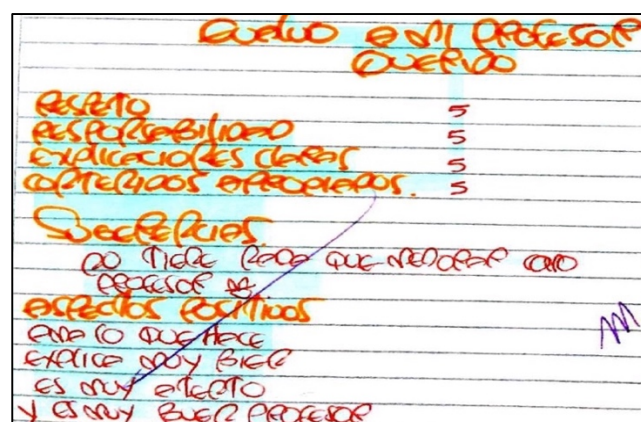 EVALUO A MI PROFESOR
QUERIDO
RESPETO 5
RESPONSABILIDAD 5
EXPLICACIONES CLARAS 5
CONTENIDOS APROPIADOS. 5
SUGERENCIAS.
NO TIENE NADA QUE MEJORAR COMO
PROFESOR
ASPECTOS POSITIVOS
AMA LO QUE HACE
EXPLICA MUY BIEN
ES MUY ATENTO
Y ES MUY BUEN PROFESOR